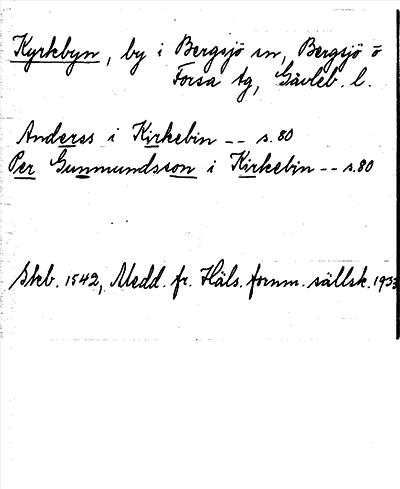 Kyrkbyn, by i Bergsjö sn, Bergsjö o
Forsa tg, Gävleb. l.
Anderss i Kirkebin -- s. 80
Per Gunmundsson i Kirkebin -- s. 80
Skb. 1542, Medd. fr. Häls. fornm. sällsk. 1933